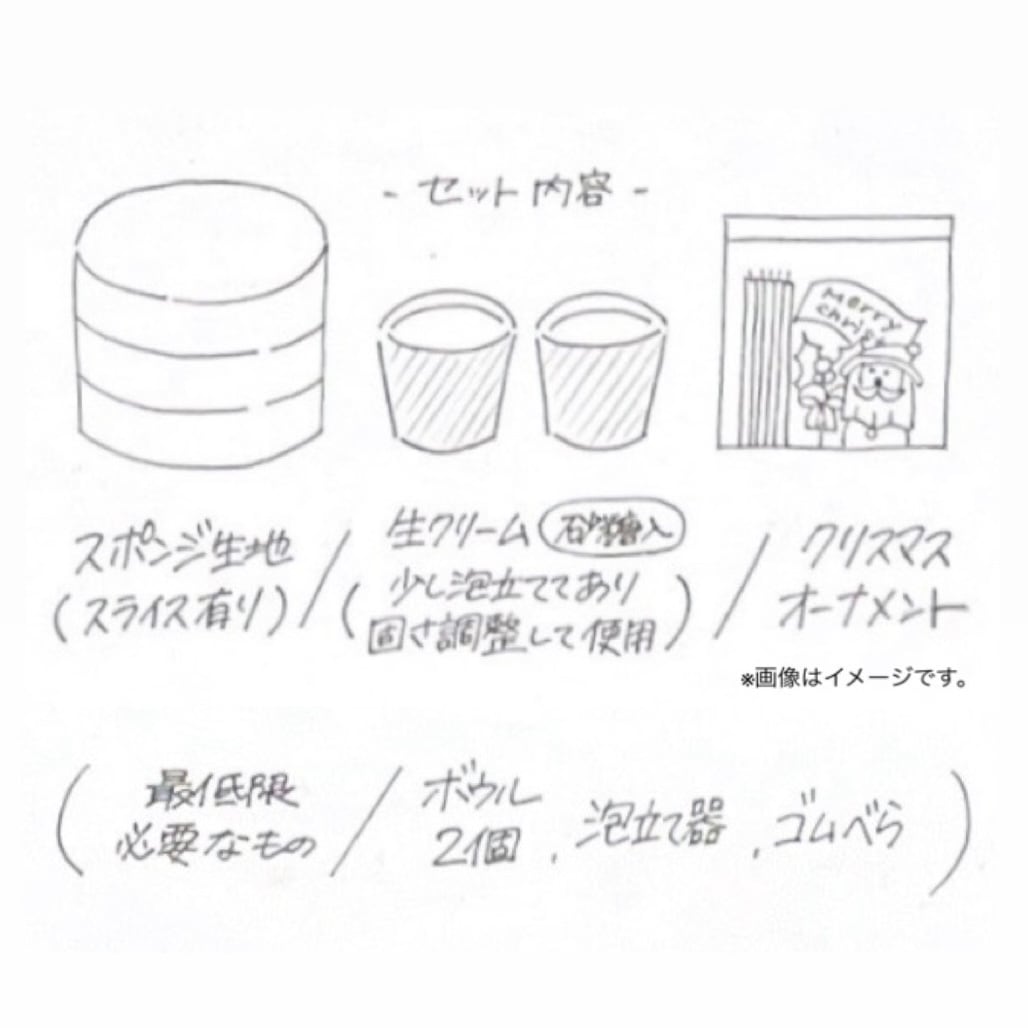 - セット内容 -
Merry
chris
スポンジ生地
(スライス有り)
/
生クリーム 砂糖入
(少し泡立ててあり
固さ調整して使用)
/
クリスマス
オーナメント
※画像はイメージです。
(最低限
必要なもの
/
ボウル
2個、泡立て器、ゴムべら)